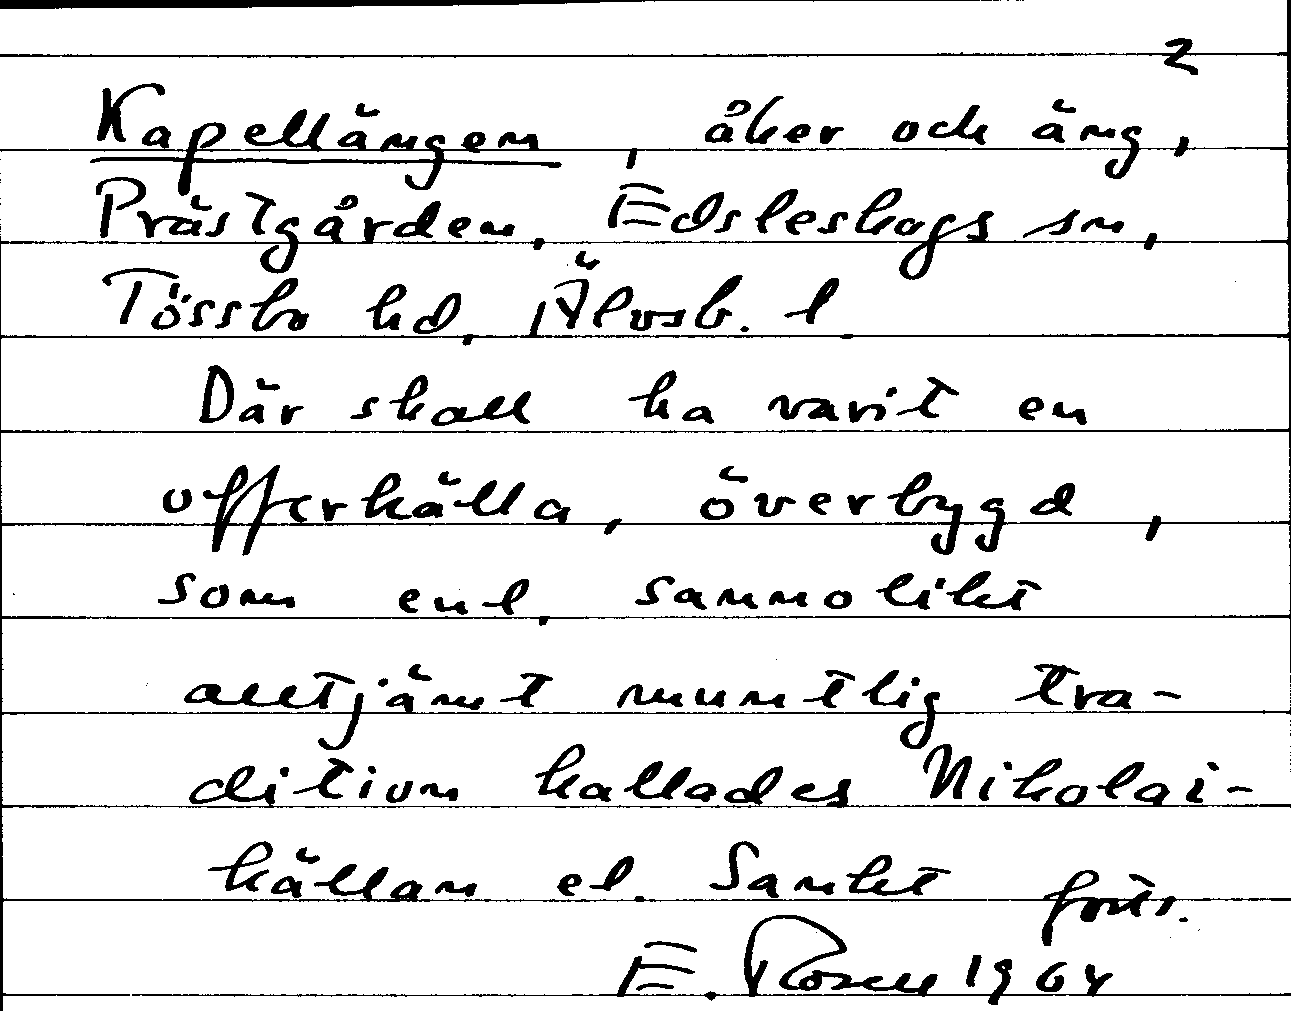 2
Kapellängen, åker och äng,
Prästgården, Edsleskogs sn,
Tössbo hd, Älvsb. l.
Där skall ha varit en
offerkälla, överbygd,
som enl. sannolikt
alltjämt muntlig tra-
dition kallades Nikolai-
källan el. Sankt forts.
E. Rosell 1964